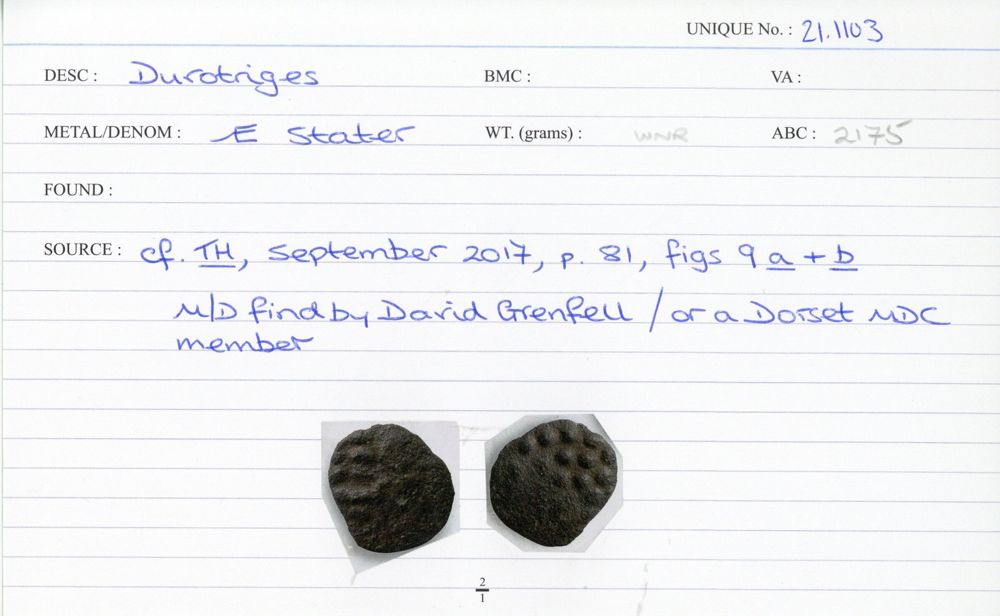 UNIQUE No. : 21.1103
DESC : Durotriges BMC : VA :
METAL/DENOM : Æ Stater WT. (grams) : WNR ABC : 2175
FOUND :
SOURCE : cf. TH, September 2017, p. 81, figs 9 a + b
M/D find by David Grenfell / or a Dorset MDC
member
2
1